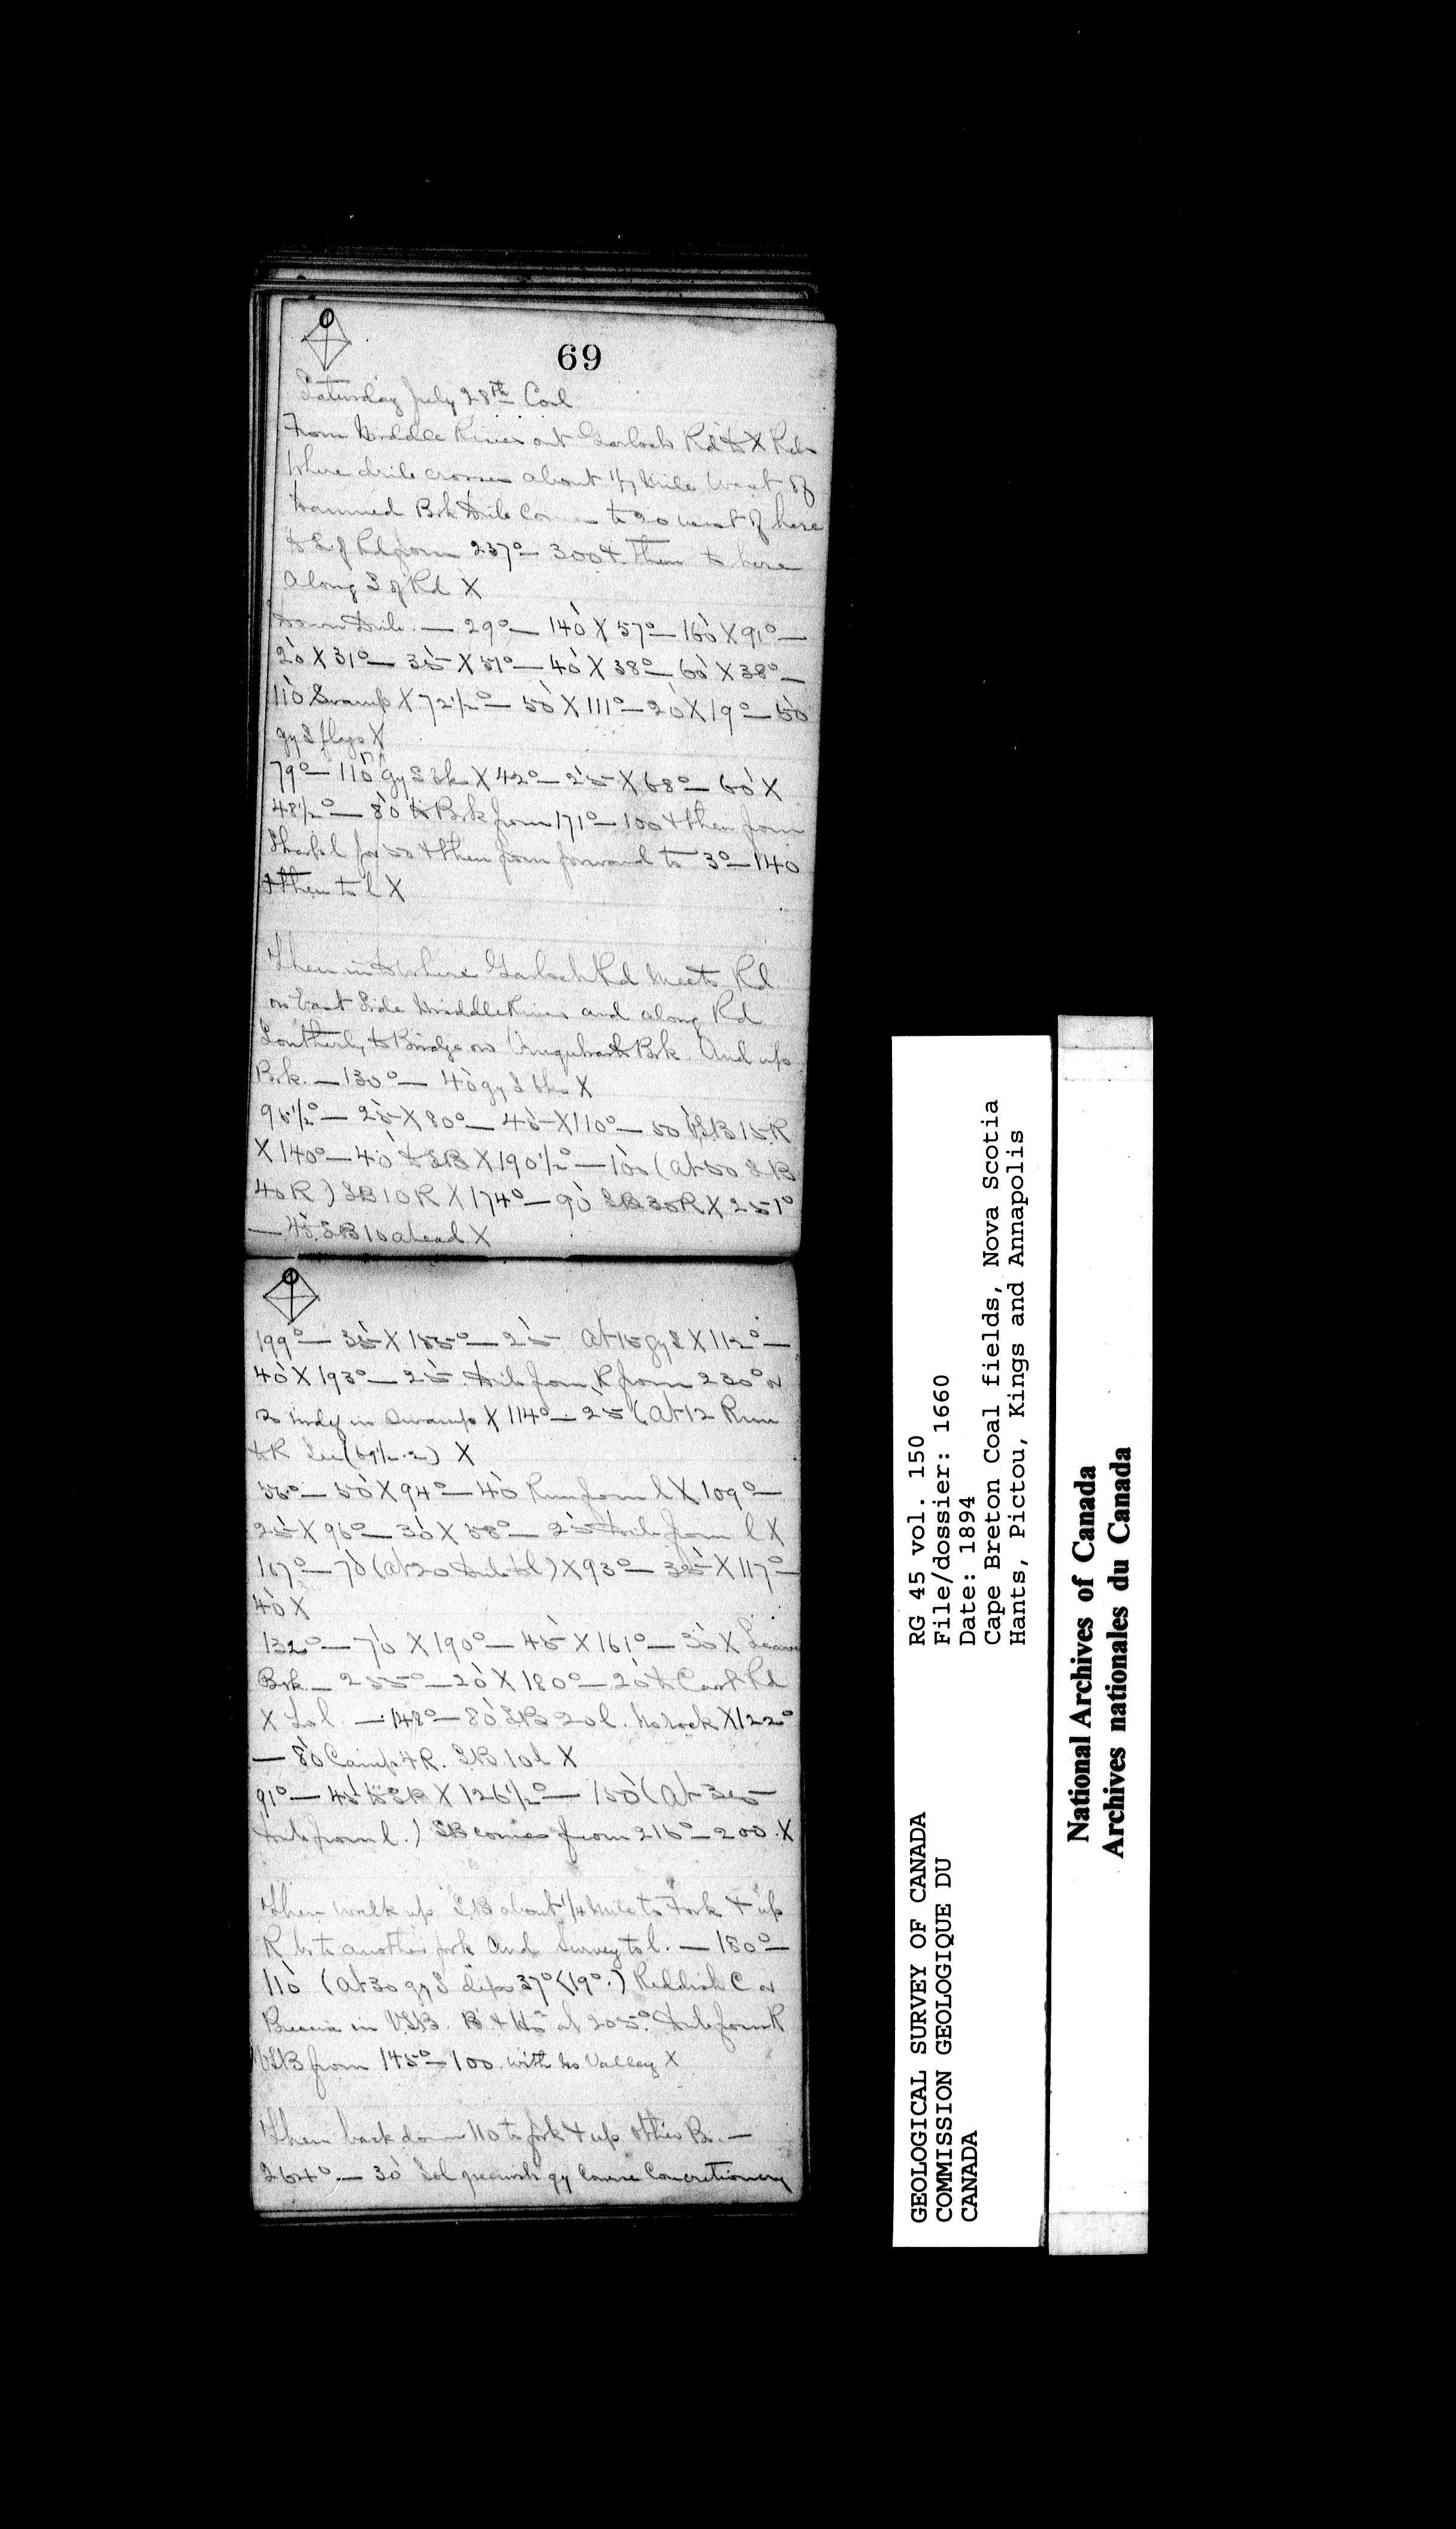 69
Saturday July 28th Cool
From Middle River out Garloch Rd to X Rds
Where drile crosses about 1/4 Mile West of
Brk drile Comes to 20 west of here
& S of Rd from 237° — 300 & then to here
along S of Rd X
Down Drile. — 29° — 140 X 57° — 160 X 91° —
20 X 31° — 35 X 51° — 40 X 38° — 60 X 38° —
110 Swamp X 72 1/2° — 50 X 111° — 20 X 19° — 50
gy S flags X
79° — 110 gy S bk X 42° — 25 X 68° — 60 X
48 1/2° — 80 to Brk from 171° — 100 & then from
Sharp l for 50 & then from forward to 3° — 140
& then to l X
Then in to where Garloch Rd Meets Rd
on East Side Middle River and along Rd
Southerly to Bridge on Brk. And up
Brk. — 130° — 40 gy S bks X
95 1/2° — 25 X 80° — 45 X 110° — 50 VSB 15 R
X 140° — 40 to SB X 190 1/2° — 100 (at 50 SB
40 R) SB 10 R X 174° — 90 SB 35 R X 251°
— 45 SB 10 ahead X
199° — 35 X 155° — 25 At 15 gy S X 112° —
40 X 193° — 25. Drile from R from 230° or
so in Swamp X 114° — 25 (at 12 Run
to R See (69 1/2. 2) X
56° — 50 X 94° — 40 Run from l X 109° —
25 X 96° — 30 X 58° — 25 Drile from l X
107° — 70 (at 20 drile to l) X 93° — 35 X 117° —
40 X
132° — 70 X 190° — 45 X 161° — 30 X Leave
Brk. — 255° — 20 X 180° — 20 to Cart Rd
X To l. — 148° — 80 SB 20 l. No rock X 122°
— 80 Camp 4 R. SB 10 l X
91° — 45 to SB X 126 1/2° — 150 (at 35
drile from l.) SB comes from 216° — 200. X
Then walk up SB about 1/4 mile to Fork & up
R br to another fork And Survey to l. — 180° —
110 (at 30 gy S dips 37° < 19°.) Reddish C or
Breccia in VSB. at 205°. Drile from R
VSB from 145° — 100. with no Valley X
Then back down 110 to fork & up other Br. —
264° — 30 Sol greenish gy Coarse Concretionary
GEOLOGICAL SURVEY OF CANADA
COMMISSION GEOLOGIQUE DU
CANADA
RG 45 vol. 150
File/dossier: 1660
Date: 1894
Cape Breton Coal fields, Nova Scotia
Hants, Pictou, Kings and Annapolis
National Archives of Canada
Archives nationales du Canada